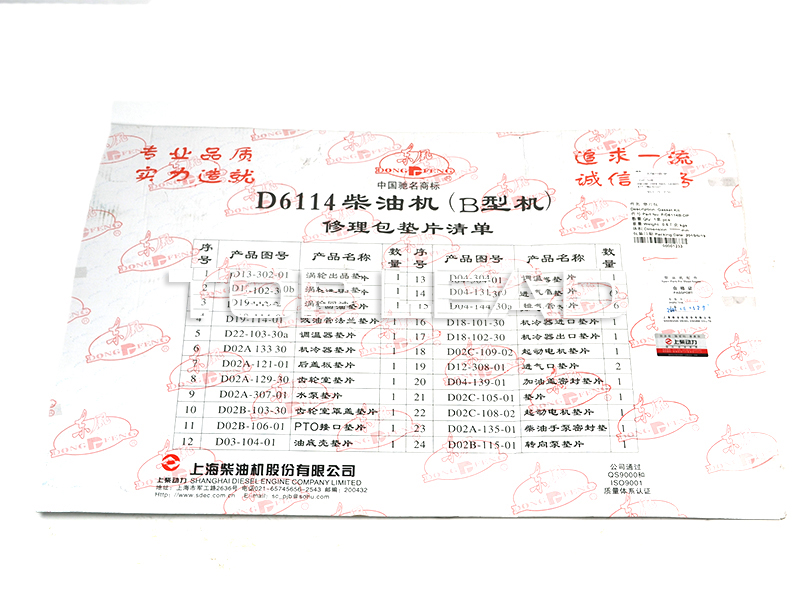 专业品质
实力造就
DONG FENG
中国驰名商标
追求一流
诚信服务
D6114柴油机(B型机)
修理包垫片清单
序号 产品图号 产品名称 数量 序号 产品图号 产品名称 数量
1 D13-302-01 涡轮出品垫片 1 13 D04-304-01 调温器垫片 1
2 1 14 进气管垫片
3 涡轮回油垫片 1 15 D04-144-30a 排气管垫片 6
4 D19-114-01 吸油管法兰垫片 1 16 D18-101-30 机冷器进口垫片 1
5 D22-103-30a 调温器垫片 1 17 D18-102-30 机冷器出口垫片 1
6 D02A 133 30 机冷器垫片 1 18 D02C-109-02 起动电机垫片 1
7 D02A-121-01 后盖板垫片 1 19 D12-308-01 进气口垫片 2
8 D02A-129-30 齿轮室垫片 1 20 D04-139-01 加油盖密封垫片 1
9 D02A-307-01 水泵垫片 1 21 D02C-105-01 垫片 1
10 D02B-103-30 齿轮室罩盖垫片 1 22 D02C-108-02 起动电机垫片 1
11 D02B-106-01 PTO接口垫片 1 23 D02A-135-01 柴油手泵密封垫 1
12 D03-104-01 油底壳垫片 1 24 D02B-115-01 转向泵垫片 1
上海柴油机股份有限公司
上柴动力 SHANGHAI DIESEL ENGINE COMPANY LIMITED
地址:上海市军工路2636号 电话:021-65745656-2543 邮编:200432
Http://www.sdec.com.cn E/mail: sc_pjb@sohu.com
公司通过
QS9000和
ISO9001
质量体系认证
合格证
上柴动力
TRULEAD